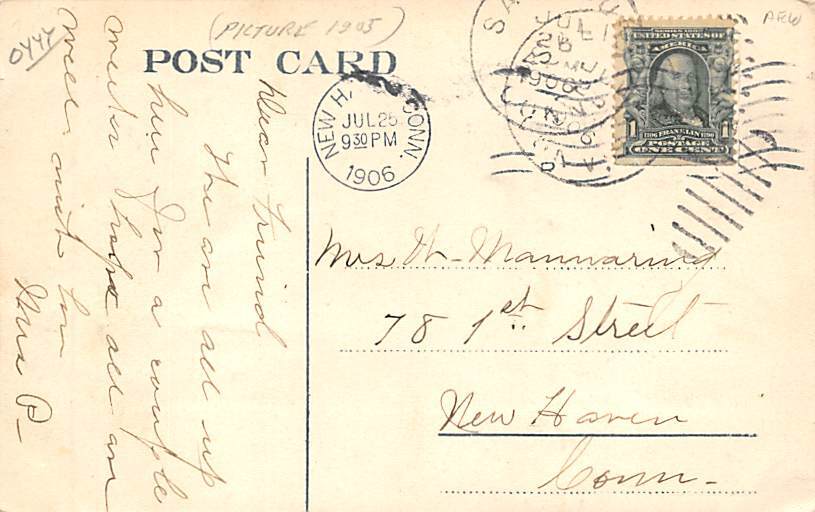 0444
(PICTURE 1905)
AEW
POST CARD
NEW H. CONN.
JUL 25
9 30 PM
1906
SERIES 1902
UNITED STATES OF
AMERICA
1 1706 FRANKLIN 1790 1
POSTAGE
ONE CENT
Dear friend
We are all up
her for a couple
weeks hope all are
well with love
Mrs P-
Mrs W- Mannaring
78 1st Street
New Haven
Conn-